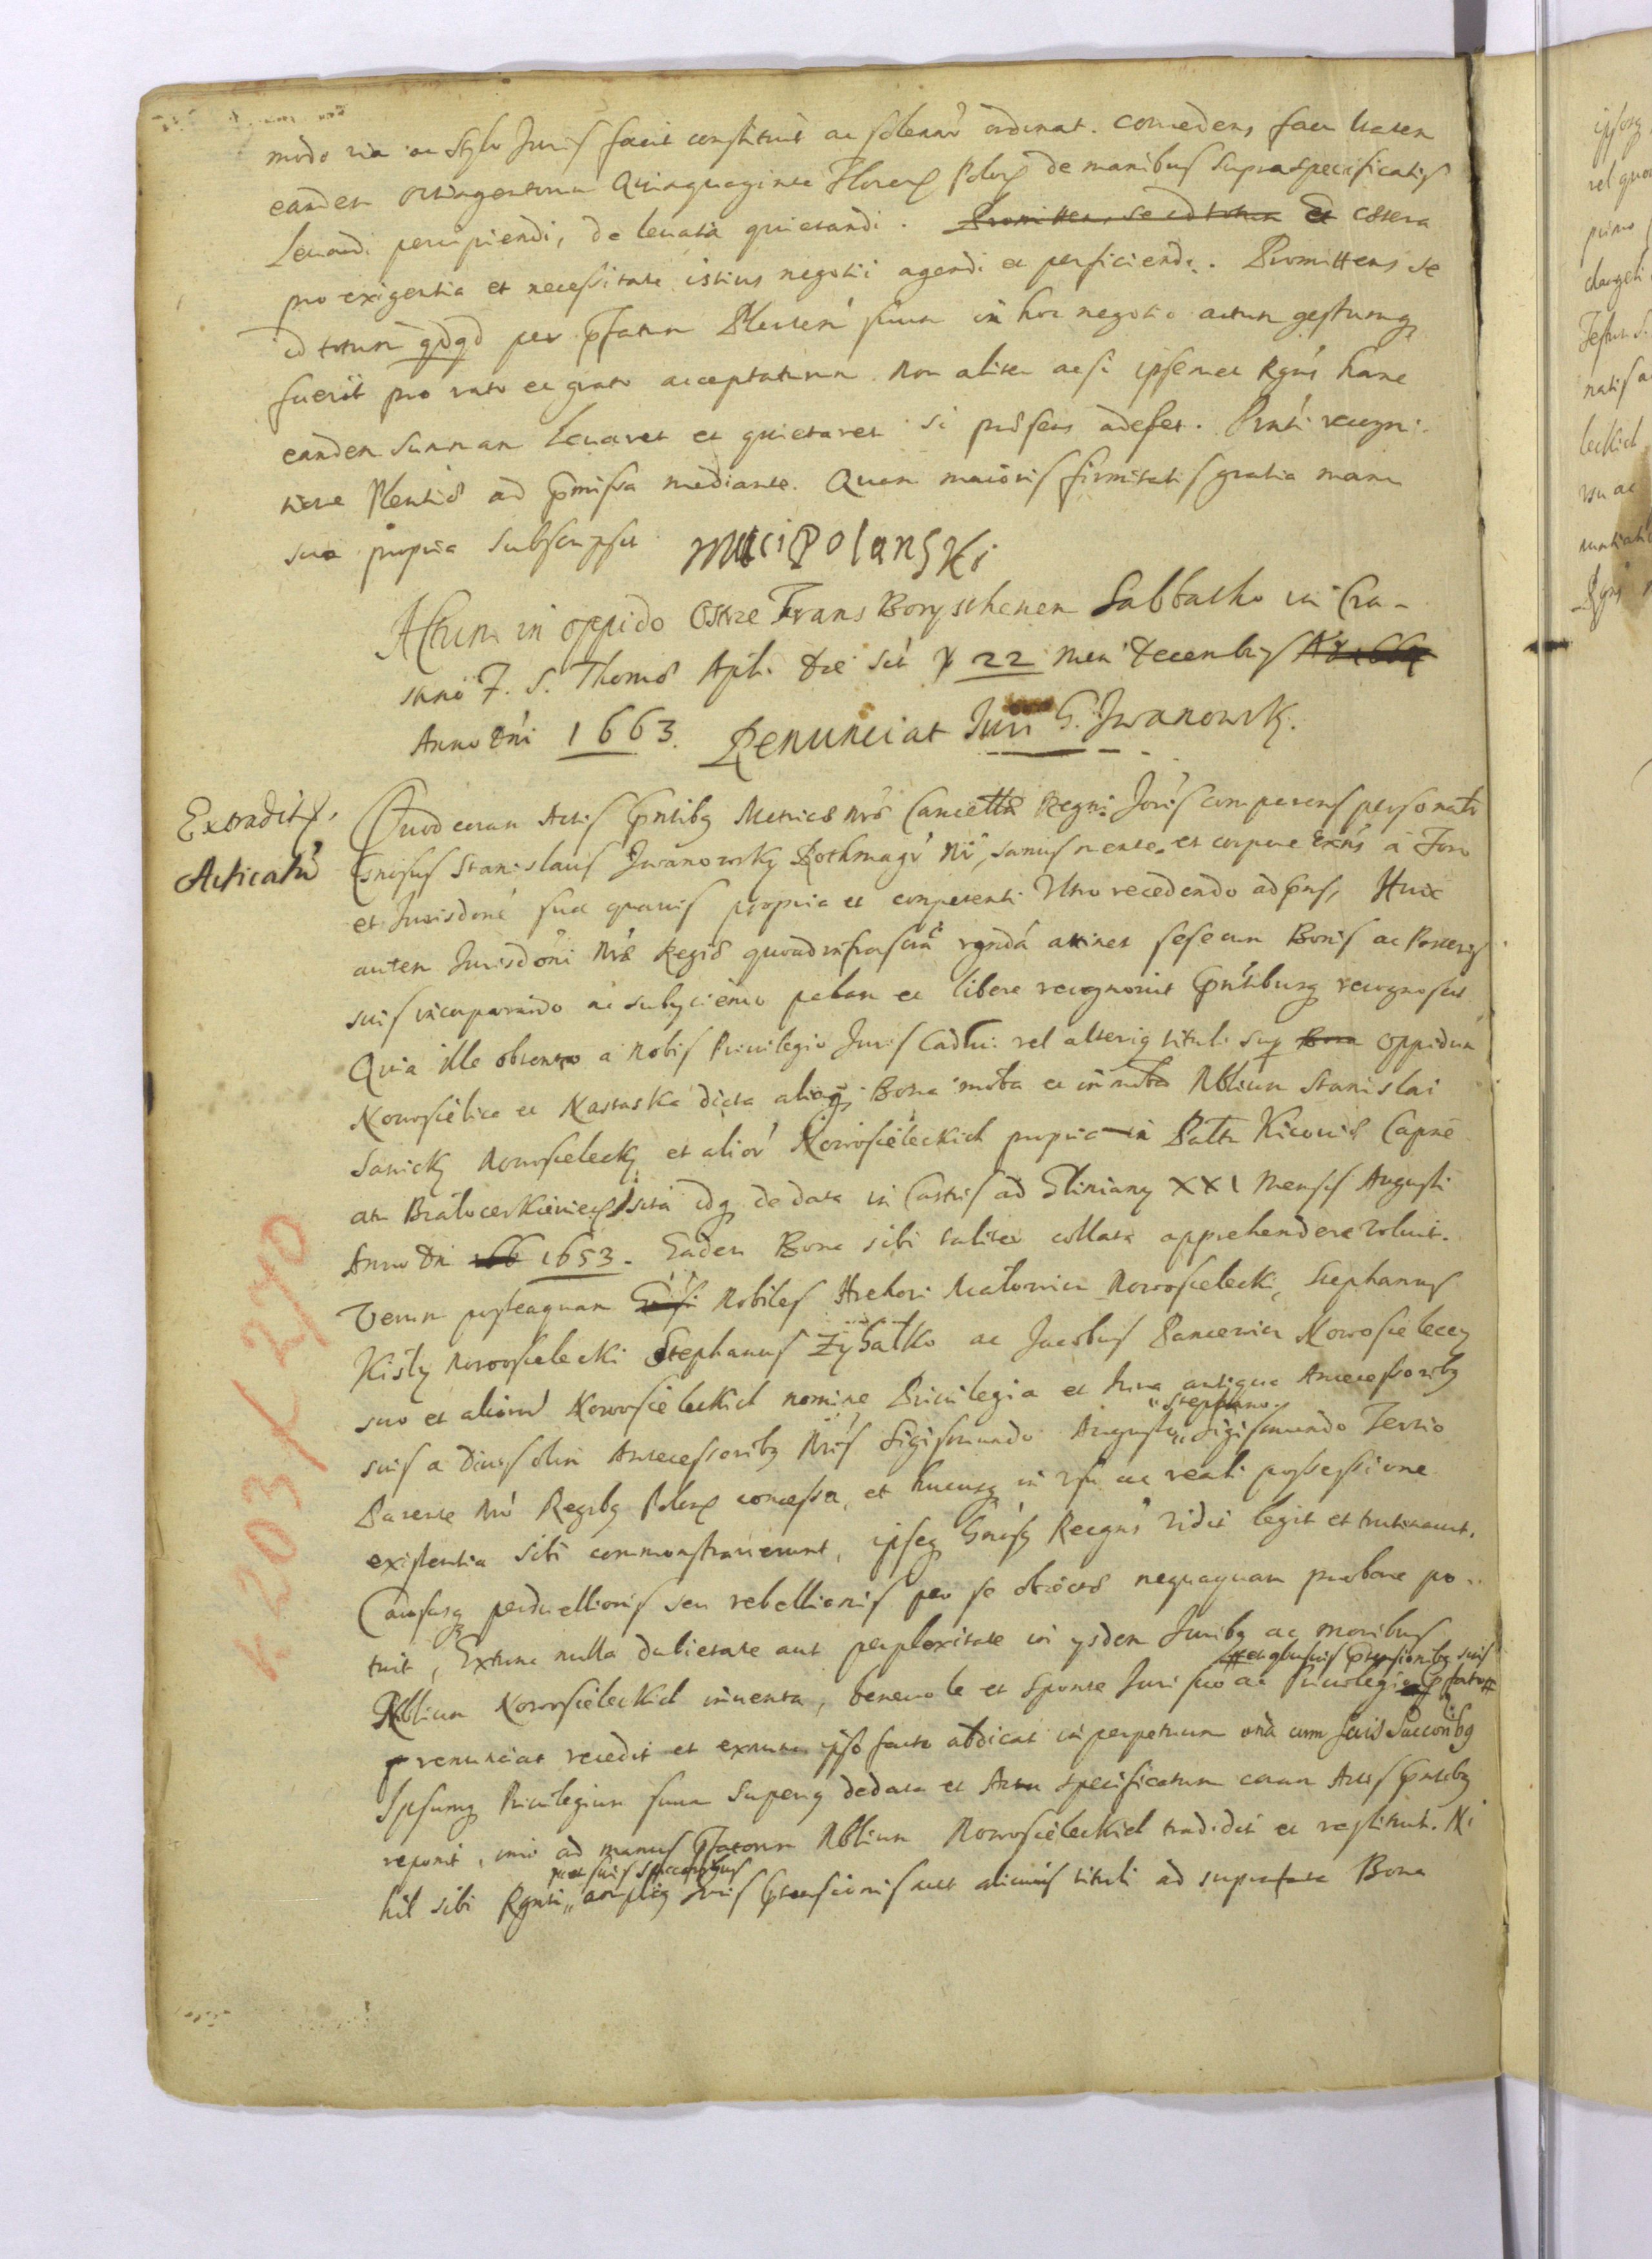 modo via ac stylo Juris facit constituit ac solenr ordinat. concedens facultatem
eandem Quinquaginta Floren Polon de manibus supraspecificatis
Levandi percipiendi, de levata quietandi. Promittens se id totum et cætera
pro exigentia et necessitate istius negotii agendi et perficiendi. Promittens se
id totum qdqd per pfatum Plenten suum in hoc negotio actum gestumq
fuerit pro rato et grato acceptaturum non aliter acsi ipsemet Rgns hanc
eandem summam Levaret et quietaret si præsens adesset. Pnti recogni-
tione Plentiæ ad pmissa mediante. Quam maioris firmitatis gratia manu
sua propria subscripsit MaciPolanski
Actum in oppido Ostrze Trans Borysthenem Sabbatho in Cra-
stino F. S. Thomæ Apli. die scil 22 men Decembris
Anno Dni 1663. Renunciat Juri G. Iwanowsk.
Extradit,
Acticatu
Quod coram Actis pntibq Metricæ nræ Cancellæ Regni Joris comparens personalr
Gnosus Stanislaus Iwanowsky Rothmagr Nr, sanus mente et corpore exns a Foro
et Jurisdone sua quavis propria et competenti Utro recedendo adpns, Huic
autem Jurisdoni Nræ Regiæ quoad infrascrta rgnda attinet sese cum Bonis ac Posteris
suis incorporando ac subyciendo palam et libere recognovit pntibusq recognoscit
Quia ille obtento a nobis Privilegio Juris Caduci vel alteriq tituli sup Bona oppidum
Nowosielica et Nastaska dicta aliaq Bona mota et inmota Nblium Stanislai
Sawicky Nowosielecky et alior Nowosieleckich propria in Paltu Kioviæ Capne
atu Białocerkiewien sita idq de data in Castris ad Gliniany XXI Mensis Augusti
Anno Dni 166 1653. Eadem Bona sibi taliter collata apprehendere voluit.
Verum posteaquam Gnosi Nobiles Hrehori Nowosielecki, Stephanus
Kisły Nowosielecki Stephanus Zybałko ac Jacobus Pancewicz Nowosielecy
suo et aliorum Nowosieleckich nomine Privilegia et Jura antiqua Antecessoribq
suis a Divis olim Antecessoribq Nris Sigismundo Augusto „Stephano„ Sigismundo Tertio
Parente Nro Regibq Polon concessa, et hucusq in usu ac reali possessione
existentia sibi commonstraverunt, ipseq Gnosq Recgns vidit legit et trutinavit.
Causasq perduellionis seu rebellionis per se obiectæ nequaquam probare po-
tuit, Extunc nulla dubietate aut perplexitate in ysdem Juribq ac moribus
Nblium Nowosieleckich inventa, benevole et sponte Juri suo ac Privilegio # et ptensionibq suis pfato #
renunciat recedit et exnunc ipso facto abdicat in perpetuum una cum suis Successoribq
Ipsumq Privilegium suum superiq dedata et Actu specificatum coram Actis pntibq
reponit, imo ad manus pfatorum Nblium Nowosieleckich tradidit et restituit. Ni-
hil sibi Rgnti „ suis Successoribus ampliq Juris ptensionis aut alicuius tituli ad suprafata Bona
k 203 / 270